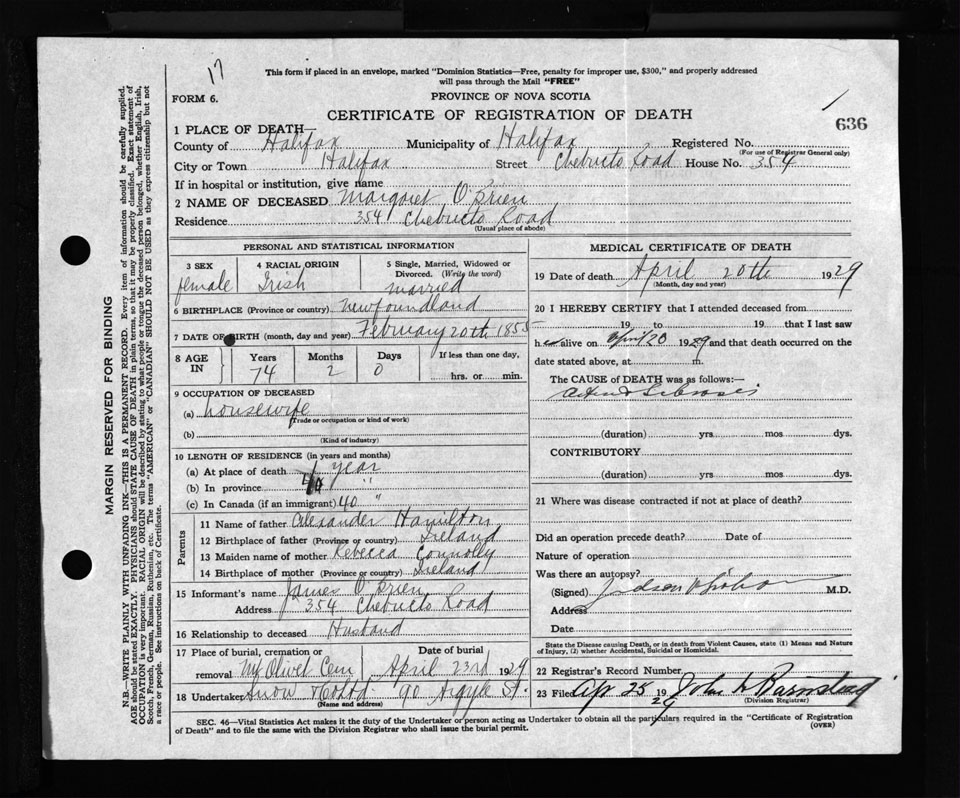 17
This form if placed in an envelope, marked "Dominion Statistics—Free, penalty for improper use, $300," and properly addressed
will pass through the Mail "FREE"
FORM 6.
PROVINCE OF NOVA SCOTIA
CERTIFICATE OF REGISTRATION OF DEATH
636
1 PLACE OF DEATH—
County of Halifax Municipality of Halifax Registered No.
(For use of Registrar General only)
City or Town Halifax Street Chebucto Road House No. 354
If in hospital or institution, give name
2 NAME OF DECEASED Margaret O'Brien
Residence 354 Chebucto Road
(Usual place of abode)
PERSONAL AND STATISTICAL INFORMATION
3 SEX female
4 RACIAL ORIGIN Irish
5 Single, Married, Widowed or
Divorced. (Write the word)
married
6 BIRTHPLACE (Province or country) Newfoundland
7 DATE OF BIRTH (month, day and year) February 20th 1855
8 AGE IN
Years Months Days If less than one day,
74 2 0 hrs. or min.
9 OCCUPATION OF DECEASED
(a) housewife
(Trade or occupation or kind of work)
(b)
(Kind of industry)
10 LENGTH OF RESIDENCE (in years and months)
(a) At place of death 1 year
(b) In province 40 "
(c) In Canada (if an immigrant) 40 "
Parents
11 Name of father Alexander Hamilton
12 Birthplace of father (Province or country) Ireland
13 Maiden name of mother Rebecca Connolly
14 Birthplace of mother (Province or country) Ireland
15 Informant's name James O'Brien
Address 354 Chebucto Road
16 Relationship to deceased Husband
17 Place of burial, cremation or Date of burial
removal Mt Olivet Cem April 23rd 1929
18 Undertaker Snow 90 Argyle St.
(Name and address)
MEDICAL CERTIFICATE OF DEATH
19 Date of death April 20th 1929
(Month, day and year)
20 I HEREBY CERTIFY that I attended deceased from
19 to 19 that I last saw
her alive on April 20 1929 and that death occurred on the
date stated above, at m.
The CAUSE of DEATH was as follows:—
(duration) yrs. mos dys.
CONTRIBUTORY
(duration) yrs. mos. dys.
21 Where was disease contracted if not at place of death?
Did an operation precede death? Date of
Nature of operation
Was there an autopsy?
(Signed) Judson M.D.
Address
Date
State the Disease causing Death, or in death from Violent Causes, state (1) Means and Nature
of Injury, (2) whether Accidental, Suicidal or Homicidal.
22 Registrar's Record Number
23 Filed Apr 25 1929 John
(Division Registrar)
SEC. 46—Vital Statistics Act makes it the duty of the Undertaker or person acting as Undertaker to obtain all the particulars required in the "Certificate of Registration
of Death" and to file the same with the Division Registrar who shall issue the burial permit.
(OVER)
MARGIN RESERVED FOR BINDING
N.B.—WRITE PLAINLY WITH UNFADING INK—THIS IS A PERMANENT RECORD. Every item of information should be carefully supplied.
AGE should be stated EXACTLY. PHYSICIANS should STATE CAUSE OF DEATH in plain terms, so that it may be properly classified. Exact statement of
OCCUPATION is very important. RACIAL ORIGIN will be described by stating to what people or tongue the deceased person belonged, whether English, Irish,
Scotch, French, German, Russian, Ruthenian, etc. The terms "AMERICAN" or "CANADIAN" SHOULD NOT BE USED as they express citizenship but not
a race or people. See instructions on back of Certificate.